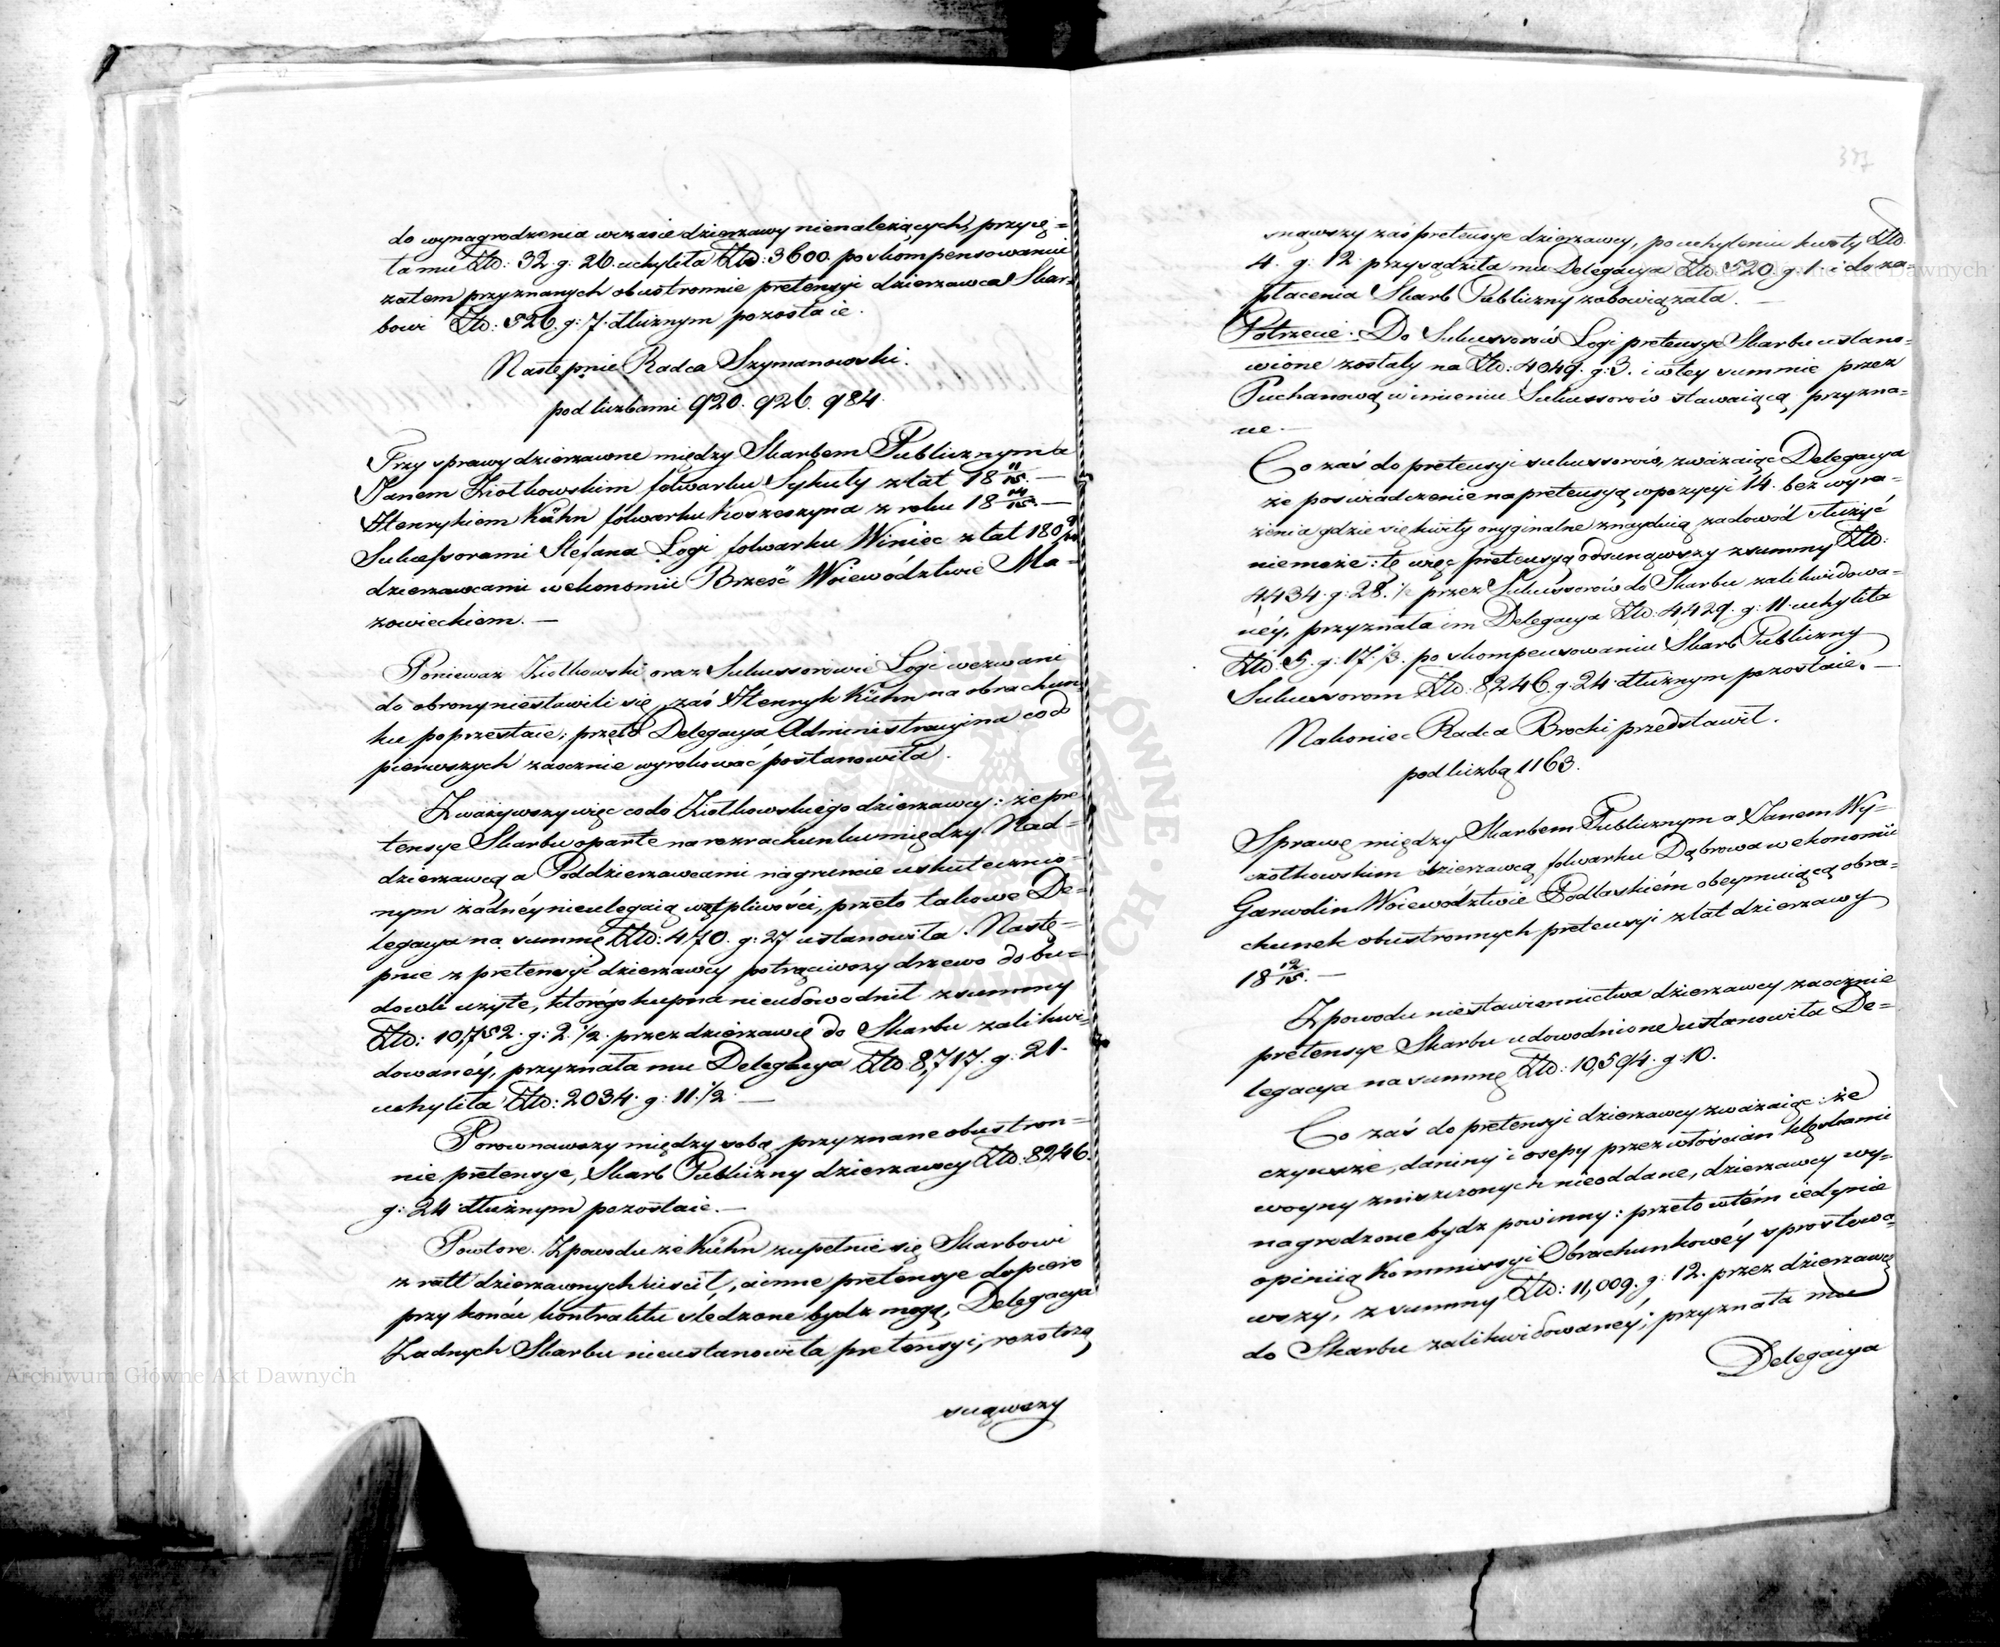 do wynagrodzenia w czasie dzierzawy nienależących, przyię-
ta mu Złtt: 32. g: 26. uchyliła Złtt: 3600. po skompensowaniu
zatem przyznanych obustronnie pretensyi dzierzawca Skar-
bowi Złtt: 526. g: 7. dłużnym pozostaie.
Następnie Radca Szymanowski.
pod liczbami 920. 926. 984.
Przy sprawy dzierzawne między Skarbem Publicznym a
Janem Ziołkowskim folwarku Sykuły z lat 18 11/15. —
Henrykiem Kühn folwarku Koszeszyna z roku 18 14/15. —
Sukcessorami Stefana Logi folwarku Winiec z lat 180
dzierzawcami w ekonomii Brześć Woiewództwie Ma-
zowieckiem. —
Ponieważ Ziołkowski oraz Sukcessorowie Logi wezwani
do obrony niestawili się, zaś Henryk Kühn na obrachun-
ku poprzestaie; przeto Delegacya Administracyina co do
pierwszych zaocznie wyrokować postanowiła.
Zważywszy więc co do Ziołkowskiego dzierzawcy: że pre-
tensye Skarbu oparte na rozrachunku między Nad-
dzierzawcą a Poddzierzawcami na gruncie uskutecznio-
nym żadnéy nieulegaią wątpliwości, przeto takowe De-
legacya na summę Złtt: 470. g: 27. ustanowiła. Nastę-
pnie z pretensyi dzierzawcy potrąciwszy drzewo do bu-
dowli użyte, którego kupna nieudowodnił z summy
Złtt: 10,752. g: 2 ½. przez dzierzawcę do Skarbu zalikwi-
dowanéy, przyznała mu Delegacya Złtt. 8,717. g: 21.
uchyliła Złtt: 2034. g: 11 ½. —
Porownawszy między sobą przyznane obustron-
nie pretensye, Skarb Publiczny dzierzawcy Złtt. 8246.
g: 24 dłużnym pozostaie. —
Powtore. Z powodu że Kühn zupełnie się Skarbowi
z ratt dzierzawnych uiścił, a inne pretensye dopiero
przy końcu kontraktu śledzone bydz mogą, Delegacya
Żadnych Skarbu nieustanowiła pretensyi, roztrzą
snąwszy
snąwszy zaś pretensye dzierzawcy, po uchyleniu kwoty Złtt.
4. g: 12. przysądziła mu Delegacya Złtt. 520. g: 1. i do za-
płacenia Skarb Publiczny zobowiązała. —
Potrzecie. Do Sukcessorów Logi pretensye Skarbu ustano-
wione zostały na Złtt: 4049. g: 3. i w téy summie przez
Puchanową w imieniu Sukcessorów stawaiącą przyzna-
ne. —
Co zaś do pretensyi sukcessorów, zważaiąc Delegacya
że poświadczenie na pretensyą w pozycyi 14. bez wyra-
żenia gdzie się kwity oryginalne znayduią za dowód służyć
niemoże: tę więc pretensyą odsunąwszy z summy Złtt:
4434. g: 28. przez Sukcessorów do Skarbu zalikwidowa-
néy, przyznała im Delegacya Złtt: 4429. g: 11. uchyliła
Złtt. 5. g: 17. po skompensowaniu Skarb Publiczny
Sukcessorom Złtt: 8246. g: 24 dłużnym pozostaie. —
Nakoniec Radca Brocki przedstawił.
pod liczbą 1163.
Sprawę między Skarbem Publicznym a Janem Wy-
czołkowskim dzierzawcą folwarku Dąbrowa w ekonomii
Garwolin Woiewództwie Podlaskiém obeymuiącą obra-
chunek obustronnych pretensyi z lat dzierzawy
18 12/15. —
Z powodu niestawiennictwa dzierzawcy zaocznie
pretensye Skarbu udowodnione ustanowiła De-
legacya na summę Złtt: 10,594. g: 10.
Co zaś do pretensyi dzierzawcy zważaiąc: że
czynsze, daniny i osepy przez włościan klęskami
woyny zniszczonych nieoddane, dzierzawcy wy-
nagrodzone bydz powinny: przeto w tém iedynie
opiniią Kommissyi Obrachunkowéy sprostowa-
wszy, z summy Złtt: 11,009. g: 12. przez dzierzawcę
do Skarbu zalikwidowanéy, przyznała mu
Delegacya
Archiwum Główne Akt Dawnych